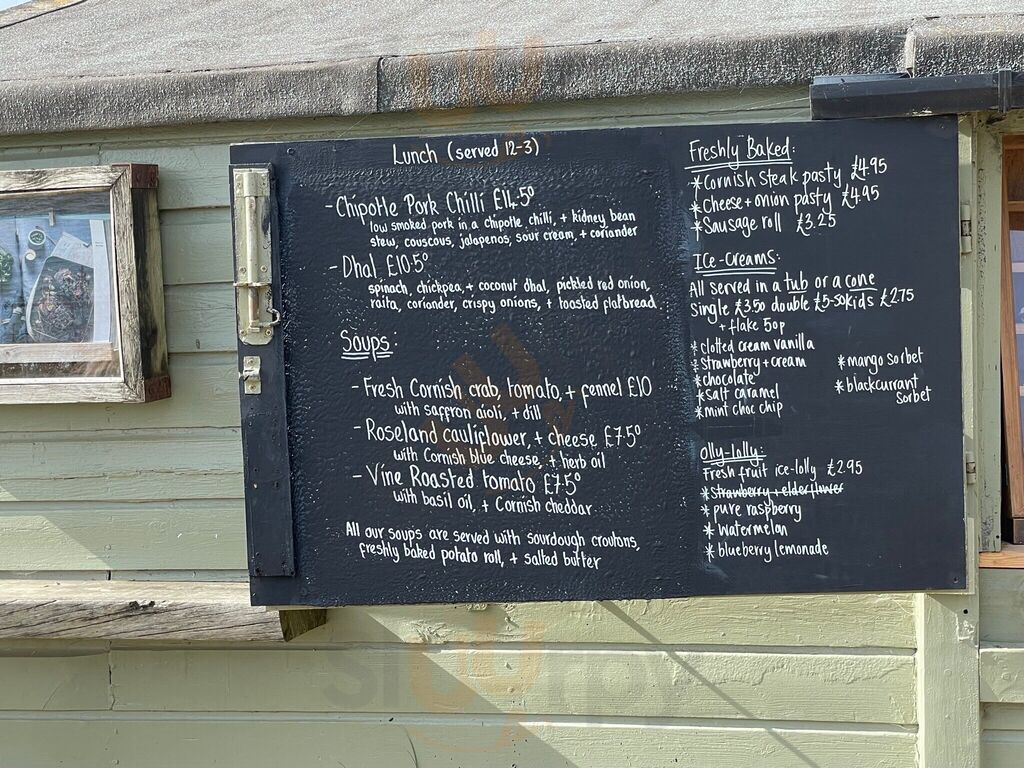 Lunch (served 12-3)
- Chipotle Pork Chilli £14.50
low smoked pork in a chipotle chilli, + kidney bean
stew, couscous, jalapenos, sour cream, + coriander
- Dhal £10.50
spinach, chickpea, + coconut dhal, pickled red onion,
raita, coriander, crispy onions, + toasted flatbread
Soups:
- Fresh Cornish crab, tomato, + fennel £10
with saffron aioli, + dill
- Roseland cauliflower, + cheese £7.50
with Cornish blue cheese, + herb oil
- Vine Roasted tomato £7.50
with basil oil, + Cornish cheddar
All our soups are served with sourdough croutons,
freshly baked potato roll, + salted butter
Freshly Baked:
* Cornish Steak pasty £4.95
* Cheese + onion pasty £4.95
* Sausage roll £3.25
Ice-Creams:
All served in a tub or a cone
Single £3.50 double £5-50 kids £2.75
+ flake 50p
* clotted cream vanilla
* strawberry + cream
* chocolate
* salt caramel
* mint choc chip
* mango sorbet
* blackcurrant
sorbet
Olly-Lolly:
Fresh fruit ice-lolly £2.95
* Strawberry + elderflower
* pure raspberry
* watermelon
* blueberry lemonade